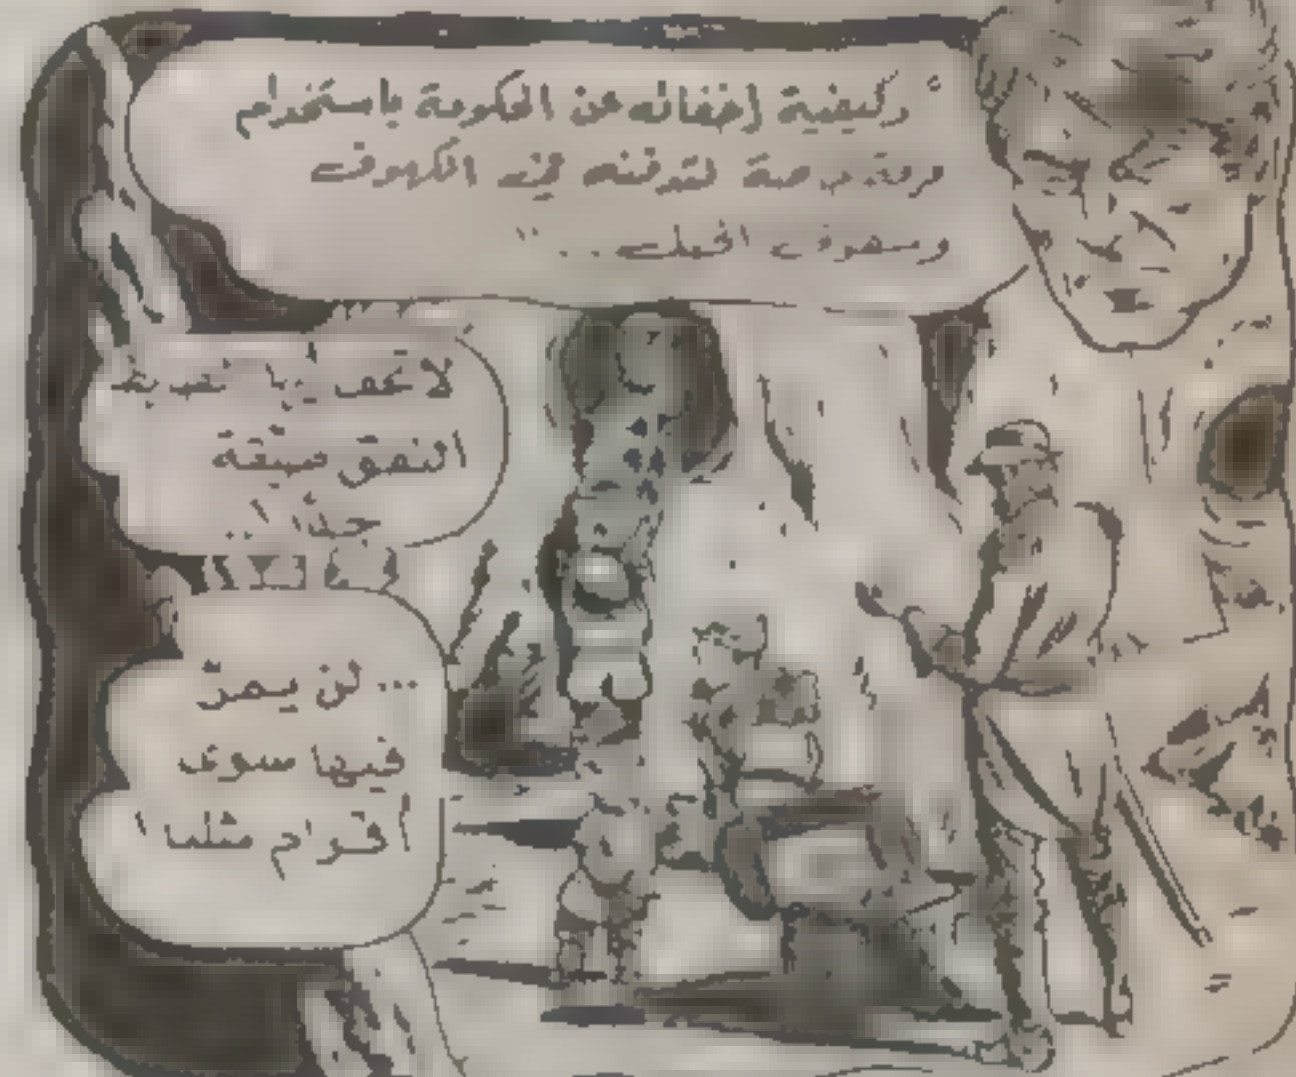 " وكيفية إخفائه عن الحكومة باستخدام
لتدفنه في الكهوف
وسفوف الجبل .. "
لا تخف يا
النفق ضيقة
جداً ..
... لن يمرّ
فيها سوى
أقزام مثلما